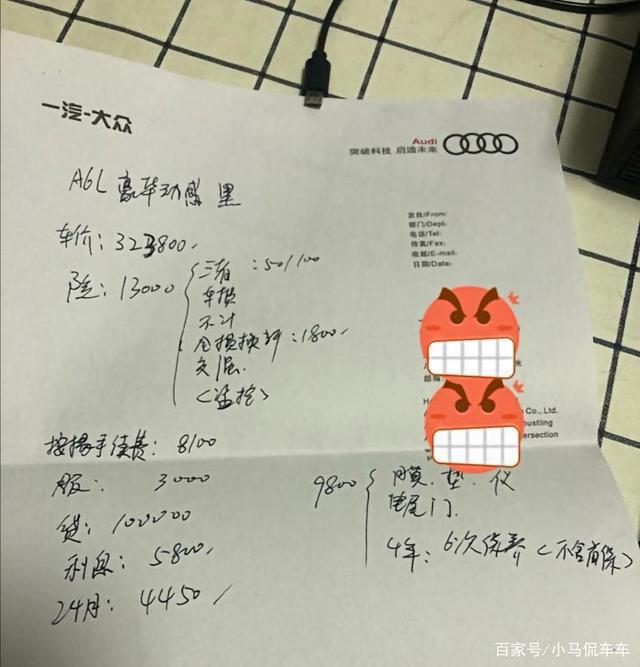 一汽-大众
Audi
突破科技 启迪未来
A6L 豪华动感 黑
发自/From:
部门/Dept:
电话/Tel:
传真/Fax:
电邮/E-mail:
日期/Date:
车价: 323800
险: 13000
三者: 50/100
车损
不计
: 1800
交强
邮编
Co., Ltd.
bustling
ersection
按揭手续费: 8100
服: 3000
贷: 100000
利息: 5800
24月: 4450
9800
膜. 垫. 仪
电尾门.
4年: 6次保养 (不含首保)
百家号/小马侃车车